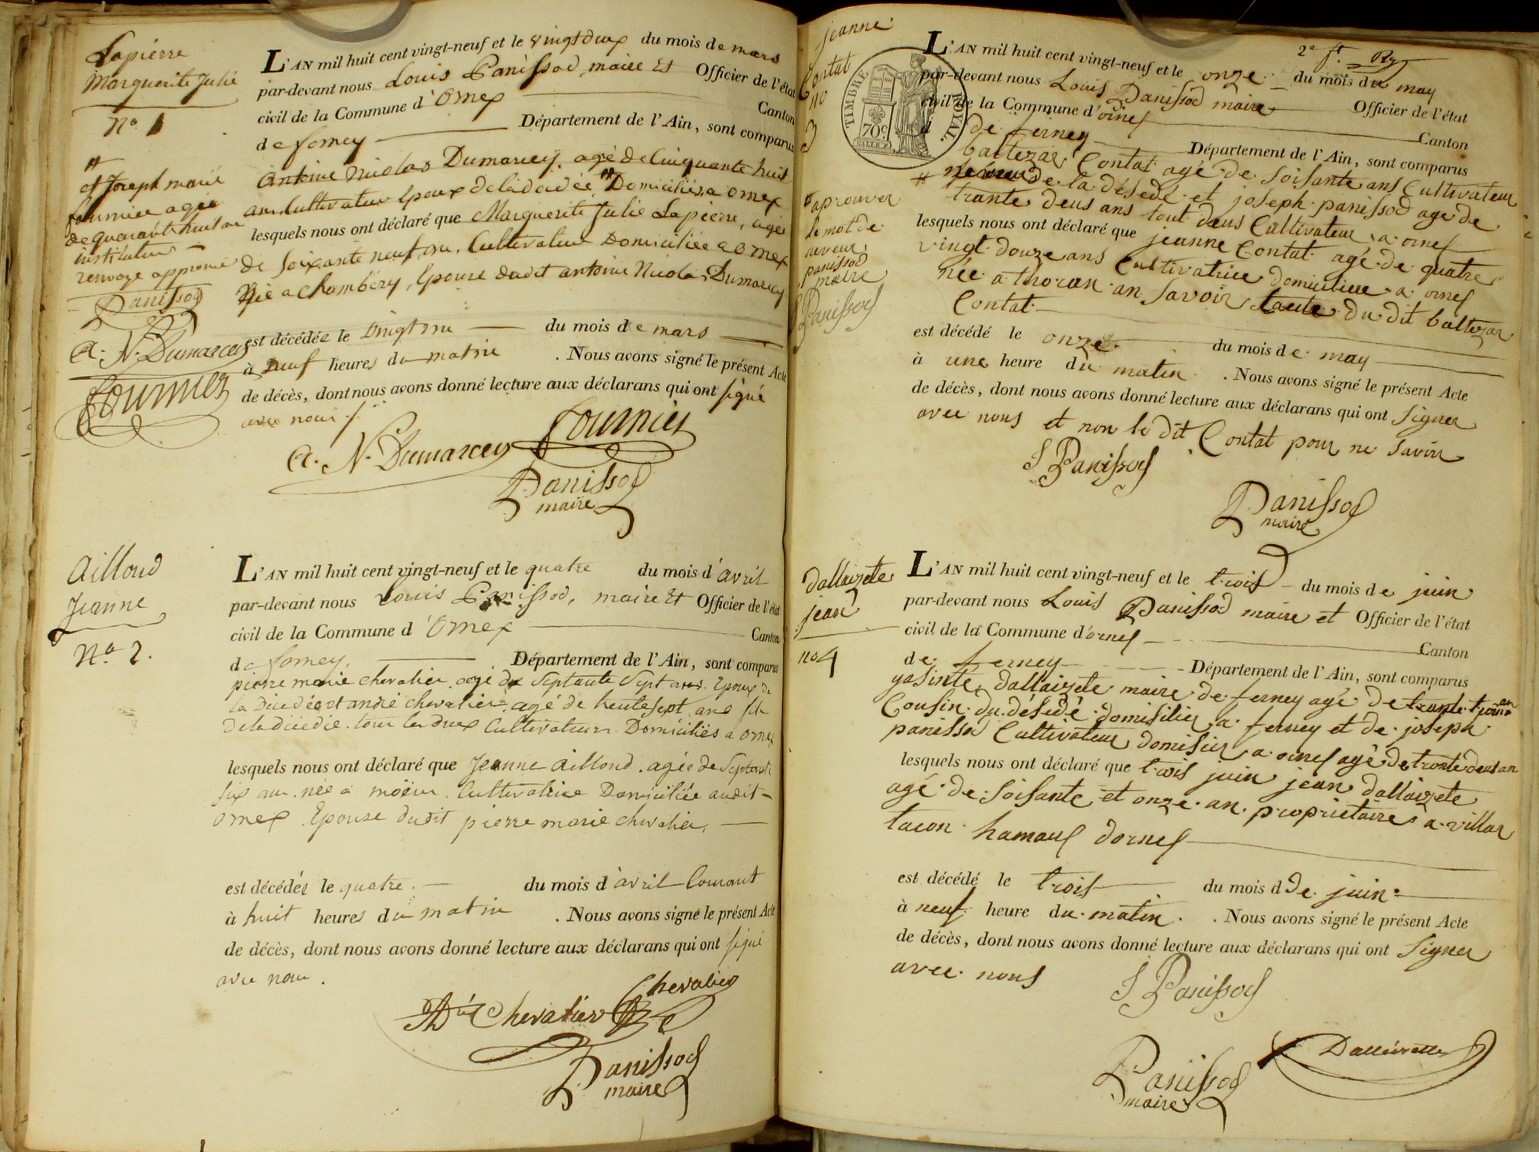 Lapierre
Marguerite Julie
No 1
L'AN mil huit cent vingt-neuf et le vingt deux du mois de mars
par-devant nous Louis Panissod, maire Et Officier de l'état
civil de la Commune d'Ornex Canton
de ferney Département de l'Ain, sont comparus
Antoine Nicolas Dumarcey, agé de Cinquante huit
ans Cultivateur Epoux de la décédée # Domiciliés a Ornex
lesquels nous ont déclaré que Marguerite Julie Lapierre, agée
de soixante neuf ans, Cultivatrice Domiciliée a Ornex
Née a Chambéry, Epouse dudit antoine Nicolas Dumarcey
est décédée le vingt un du mois de mars
à neuf heures du matin . Nous avons signé le présent Acte
de décès, dont nous avons donné lecture aux déclarans qui ont signé
avec nous /.
#
et Joseph marie
fournier agée
de quarante huit ans
instituteur
renvoye approuvé
Panissod
a. N. Dumarcey
Fournier
a. N. Dumarcey Fournier
Panissod
maire
Ailloud
Jeanne
No 2.
L'AN mil huit cent vingt-neuf et le quatre du mois d'avril
par-devant nous Louis Panissod, maire Et Officier de l'état
civil de la Commune d'Ornex Canton
de ferney, Département de l'Ain, sont comparus
pierre marie chevalier agé de Septante Sept ans Epoux de
la Ditte décédée et andré chevalier, agé de trente sept ans fils
de la ditte dée tous les deux Cultivateurs Domiciliés a Ornex
lesquels nous ont déclaré que Jeanne Ailloud, agée de Septante
six ans née a moëns Cultivatrice Domiciliée audit
Ornex, Epouse dudit pierre marie chevalier,
est décédés le quatre du mois d'avril Courant
à huit heures du matin . Nous avons signé le présent Acte
de décès, dont nous avons donné lecture aux déclarans qui ont signé
avec nous.
Chevalier
Ad. Chevalier
Panissod
maire
jeanne
Contat
no
3
TIMBRE ROYAL
70c
2e ft.
L'AN mil huit cent vingt-neuf et le onze du mois de may
par-devant nous Louis Panissod maire Officier de l'état
civil de la Commune d'ornex Canton
de ferney Département de l'Ain, sont comparus
baltezar Contat agé de soisante ans Cultivateur
# neveu de la désédé et joseph panissod age de
trante deus ans tout deus Cultivateur a ornex
lesquels nous ont déclaré que jeanne Contat agé de quatre
vingt douze ans Cultivatrice domiciliee a ornex
née a thoran an savoir tante du dit baltezar
Contat
est décédé le onze du mois de may
à une heure du matin . Nous avons signé le présent Acte
de décès, dont nous avons donné lecture aux déclarans qui ont signer
avec nous et non le dit Contat pour ne savoir
# aprouver
le mot de
neveu
panissod
maire
J Panissod
J Panissod
Panissod
maire
dallaizete
jean
no 4
L'AN mil huit cent vingt-neuf et le trois du mois de juin
par-devant nous Louis Panissod maire et Officier de l'état
civil de la Commune d'ornex Canton
de ferney Département de l'Ain, sont comparus
yasinte dallaizete maire de ferney agé de trante trois an
Cousin du désédé domisilier a ferney et de joseph
panissod Cultivateur domisier a ornex agé de trante deus an
lesquels nous ont déclaré que trois juin jean dallaizete
agé de soisante et onze an propriétaire a villar
tacon hamaus dornex
est décédé le trois du mois d de juin
à neuf heure du matin . Nous avons signé le présent Acte
de décès, dont nous avons donné lecture aux déclarans qui ont signer
avec nous
J Panissod
Dalleizette
Panissod
maire